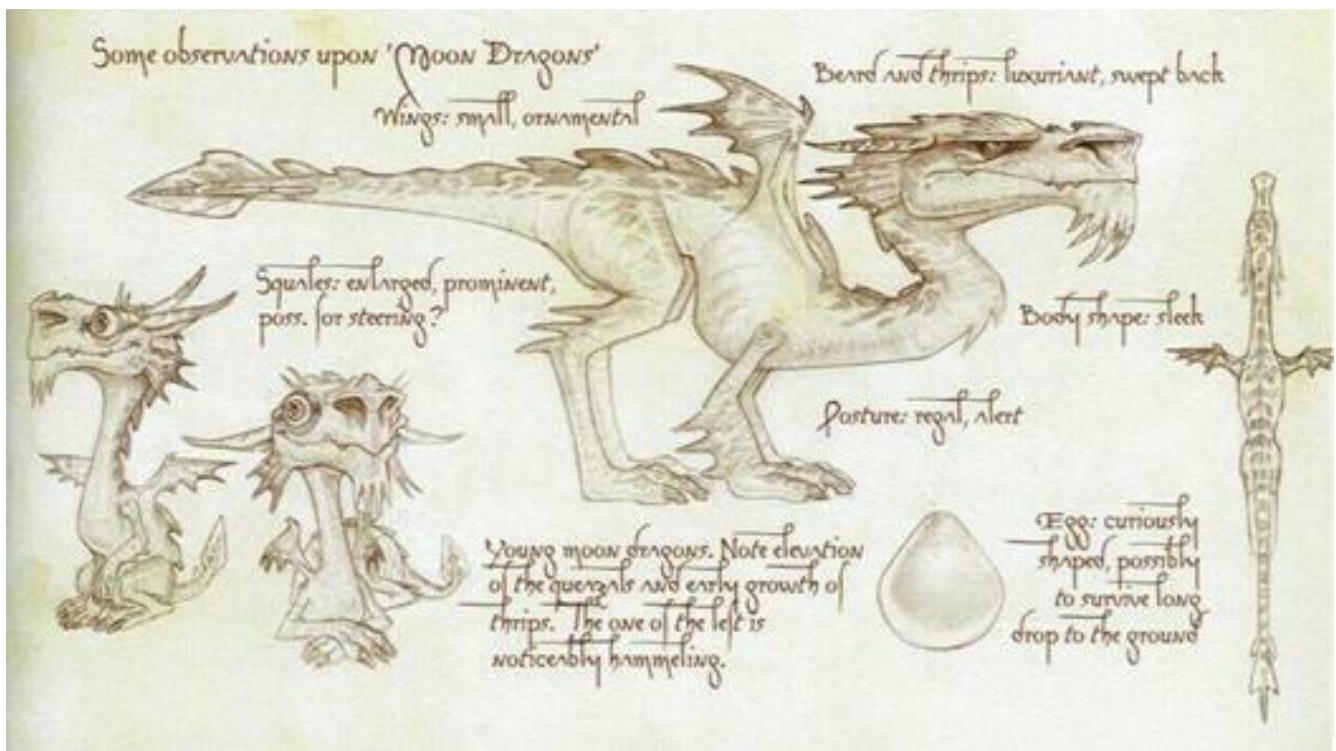 Some observations upon 'Moon Dragons'
Wings: small, ornamental
Beard and thrips: luxuriant, swept back
Squales: enlarged, prominent,
poss. for steering?
Body shape: sleek
Posture: regal, alert
Young moon dragons. Note elevation
of the quezals and early growth of
thrips. The one of the left is
noticeably hammeling.
Egg: curiously
shaped, possibly
to survive long
drop to the ground